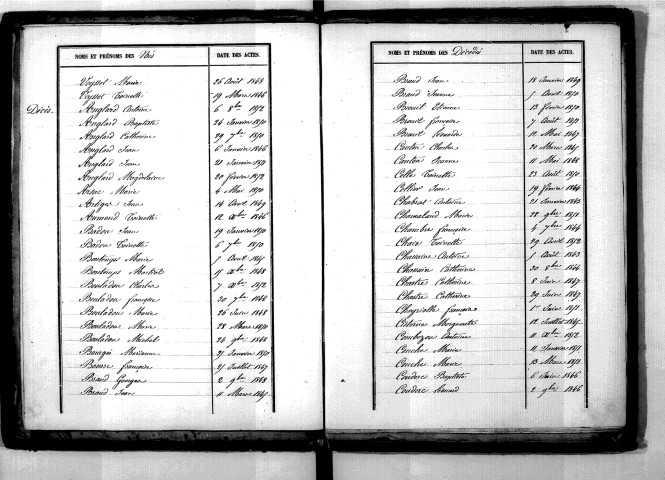 NOMS ET PRÉNOMS DES Nés DATE DES ACTES.
Veysset Marie 26 Août 1868
Veysset Toinette 19 Mars 1866
Décés. Anglard Antoine 6 8bre 1872
Anglard Baptiste 24 Janvier 1870
Anglard Catherine 29 7bre 1870
Anglard Jean 6 Janvier 1866
Anglard Jean 21 Janvier 1871
Anglard Magdelaine 20 février 1872
Marie 4 Mai 1870
Artiges Jean 14 Avril 1869
Aumond Toinette 12 Xbre 1866
Badon Jean 19 Janvier 1870
Badon Toinette 6 7bre 1870
Bontemps Marie 1 Avril
Bontemps 15 Xbre 1868
Bouladon Charles 7 Xbre 1872
Bouladon françoise 30 7bre 1866
Bouladon Marie 26 Juin 1868
Bouladon Marie 28 Mars 1870
Bouladon Michel 26 9bre 1868
Marianne 27 Janvier 1870
françoise 27 Juillet 1867
Braud Georges 2 9bre 1868
Braud Jean 11 Mars
NOMS ET PRÉNOMS DES Décédés DATE DES ACTES.
Braud Jean 18 Janvier 1869
Braud Jeanne 1 Avril 1870
Breuil Etienne 13 février 1870
Breuil françois 7 Août 1871
Breuil 11 Mai 1867
Charles 20 Mars
Jeanne 11 Mai 1868
Celle Toinette 23 Avril 1870
Jean 19 février 1868
Chabrat Antoine 21 Janvier 1863
Chamaland Marie 22 9bre 1871
Chambre françoise 4 7bre 1864
Toinette 29 Avril 1872
Chassaine Antoine 1 Août 1863
Chassaire Catherine 30 8bre 1866
Chastre Catherine 8 Juin 1867
Chastre Catherine 29 Juin 1867
françoise 1er Juin 1871
Marguerite 12 Juillet
Combezou Antoine 11 Xbre 1872
Couche Marie 11 Janvier 1871
Couche Marie 13 Mars 1871
Couderc Baptiste 6 Juin 1866
Couderc 2 9bre 1866